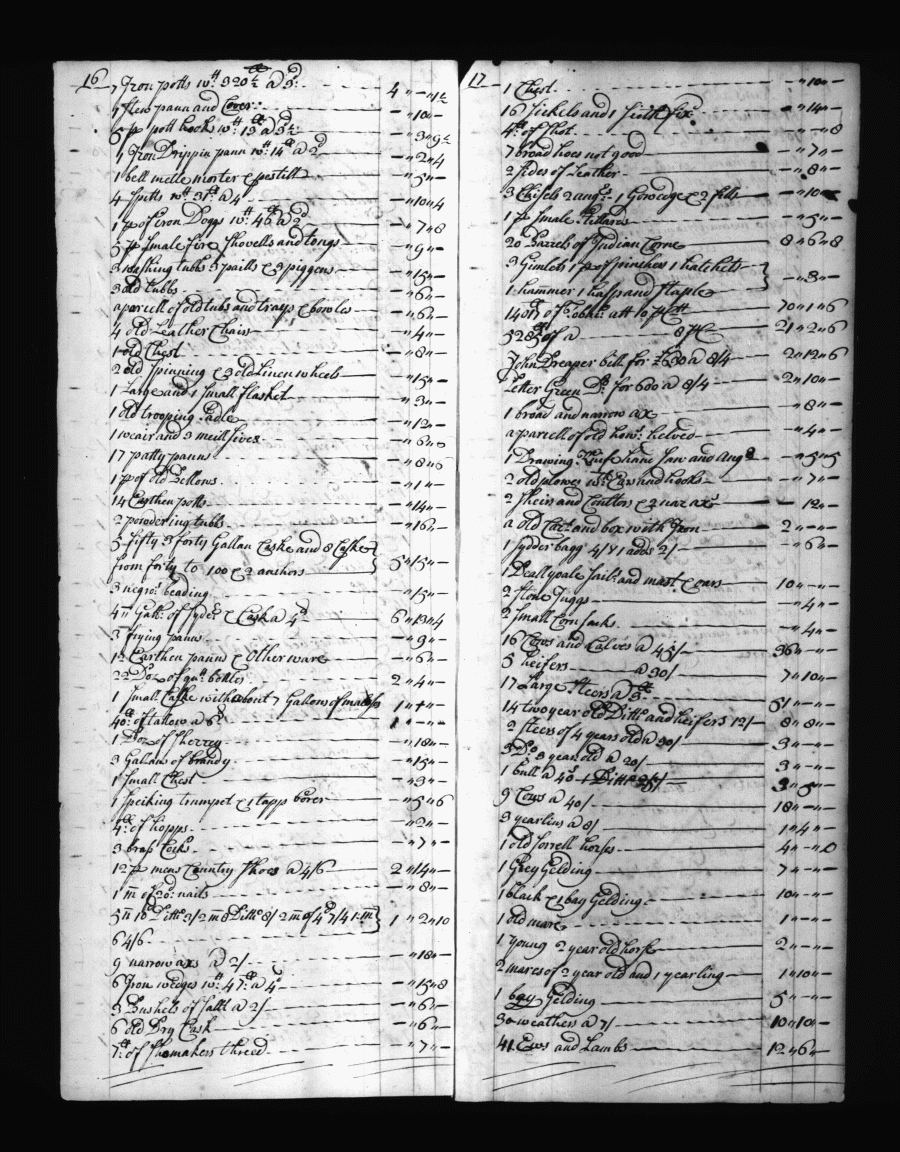 16
7 Iron potts wtt 320½ a 3d 4 " - "1½
4 Stew pann and Cover - "10 " -
6 pr pott hook wtt 13 a 3½ - "3 "9½
1 Iron Drippin pann wtt 14tt a 2d - "2 "4
1 bell melle morter & pestill - "5 " -
4 Spitts wtt 31tt a 4 - "10 "4
1 pr of Iron Doggs wtt 46tt a 2d - "7 "8
5 pr Smale fire Shovells and tongs - "9 " -
3 washing tubbs 3 paills & 3 piggens - "15 " -
3 old tubbs - "6 " -
a parcell of old tubs and trays & bowles - "6 " -
4 old Leather Chairs - "4 " -
1 old Chest - "8 " -
2 old Spinning & 3 old Linen wheels - "15 " -
1 Large and 1 Small flasket - "3 " -
1 old trooping Sadle - "12 " -
1 wear and 3 meill sives - "6 "0
17 patty panns - "8 "6
1 pr of old Bellows - "1 " -
14 Earthen potts - "14 " -
2 powdering tubbs - "16 " -
5 fifty 3 forty Gallan Caske and 8 Caske
from forty to 100 & 2 anchors 5 "15 " -
3 negros beading - "15 " -
Gall: of Syder & Cask a 4d 6 "13 "4
3 frying panns - "9 " -
12 Earthen panns & Other ware - "6 " -
22 Doz of qut botles 2 "4 " -
1 Small Caske with about 7 Gallons of malass 1 "1 " -
40tt of tallow a 6d 1 " - " -
1 Doz of Sherrey - "18 " -
3 Gallans of brandy - "15 " -
1 Small Chest - "3 " -
1 Speiking trumpet & 1 tapp borer - "5 "6
4tt of hopps - "2 " -
3 brass Cocks - "7 " -
12 pr mens Country Shoes a 4/6 2 "14 " -
1 m of 20d nails - "8 " -
5 m 10d Ditto 3/ 2 m 8 Ditto 8/ 2 m of 4d 7/4 1 m
6 4/6 1 "2 "10
9 narrow axs a 2/ - "18 " -
6 Iron wedges wtt 47tt a 4d - "15 "8
3 Bushels of Sallt a 2/ - "6 " -
6 old Dry Cask - "6 " -
7tt of Shomakers threed - "7 " -
17
1 Chest - "10 " -
16 Sickels and 1 Sieth - "14 " -
4tt of Shot - " - "8
7 broad hoes not good - "7 " -
2 Sides of Leather - "8 " -
3 Chisels 2 augrs 1 Gowedge & 2 fills - "10 " -
1 pr Smale Stillards - "5 " -
20 Barrels of Indian Corne 8 "6 "8
3 Gimlets 1 pr of pinshers 1 hatchets
1 hammer 1 hasp and Staple - "8 " -
14017 of Tobko: att 10 p Ctt 70 "1 "6
5282 of a 8 p C 21 "2 "6
John Dreaper bill for 630 a 8/4 2 "12 "6
Petter Green Do for 600 a 8/4 2 "10 " -
1 broad and narrow ax - "8 " -
a parcell of old hows helved - "4 " -
1 Drawing Knife hand Saw and Augr - "5 "5
2 old plowes wth Ears and hooks - "7 " -
2 Sheirs and Coulters & 2 nar axs - 12 " -
a old Cart and box with Iron 2 " - " -
1 Syder bagg 4/ & 1 adds 2/ - "6 " -
1 Deall yoale Saile and mast & oars 10 " - " -
2 Stone Juggs - "4 " -
2 Small Corn Sacks - "4 " -
16 Cows and Calves a 45/ 36 " - " -
5 heifers a 30/ 7 "10 " -
17 Large Steers a 3tt 51 " - " -
14 two year old Ditto and heifers 12/ 8 "8 " -
2 Steers of 4 years old a 30/ 3 " - " -
3 Do 3 year old a 20/ 3 " - " -
1 bull a 40 3 "5 " -
9 Cows a 40/ 18 " - " -
3 yearlins a 8/ 1 "4 " -
1 old Sorrell horse 4 " - "0
1 Grey Gelding 7 " - " -
1 black & 1 bay Gelding 10 " - " -
1 old mare 1 " - " -
1 young 2 year old horse 2 " - " -
2 mares of 2 year old and 1 yearling 1 "10 " -
1 bay Gelding 5 " - " -
30 weathers a 7/ 10 "10 " -
41 Ews and Lambs 12 "6 " -